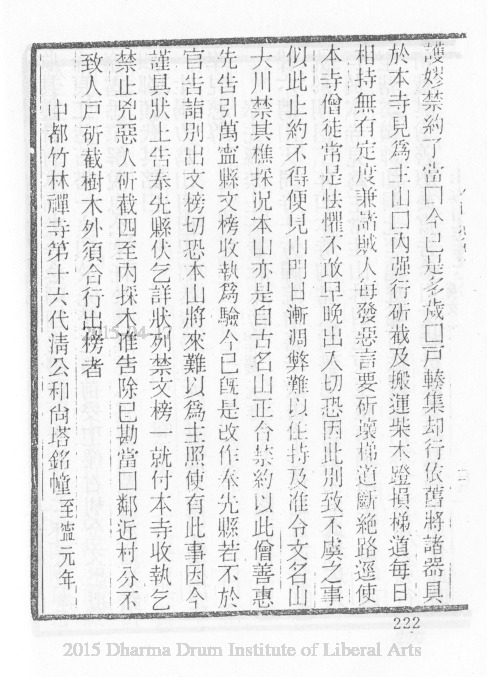 護嫪禁約了當囗今已是多歲囗戶輳集却行依舊將諸器具
於本寺見爲主山囗內强行斫截及搬運柴木蹬損梯道每日
相持無有定度兼諸賊人每發惡言要斫壞梯道斷絕路逕使
本寺僧徒常是怯懼不敢早晚出入切恐因此別致不虞之事
似此止約不得便見山門日漸凋弊難以住持及准令文名山
大川禁其樵採況本山亦是自古名山正合禁約以此僧善惠
先告引萬寧縣文榜收執爲驗今已旣是改作奉先縣若不於
官告詣別出文榜切恐本山將來難以爲主照使有此事因今
謹具狀上告奉先縣伏乞詳狀列禁文榜一就付本寺收執乞
禁止兇惡人斫截四至內採木准告除已勘當囗鄰近村分不
致人戶斫截樹木外須合行出榜者
中都竹林禪寺第十六代清公和尙塔銘幢 至寧元年
222
2015 Dharma Drum Institute of Liberal Arts